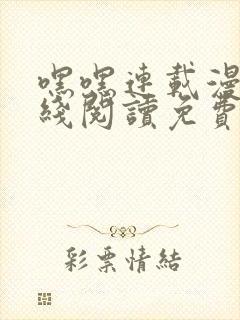 嘿嘿連載漫
綫閱讀免費
彩票情結